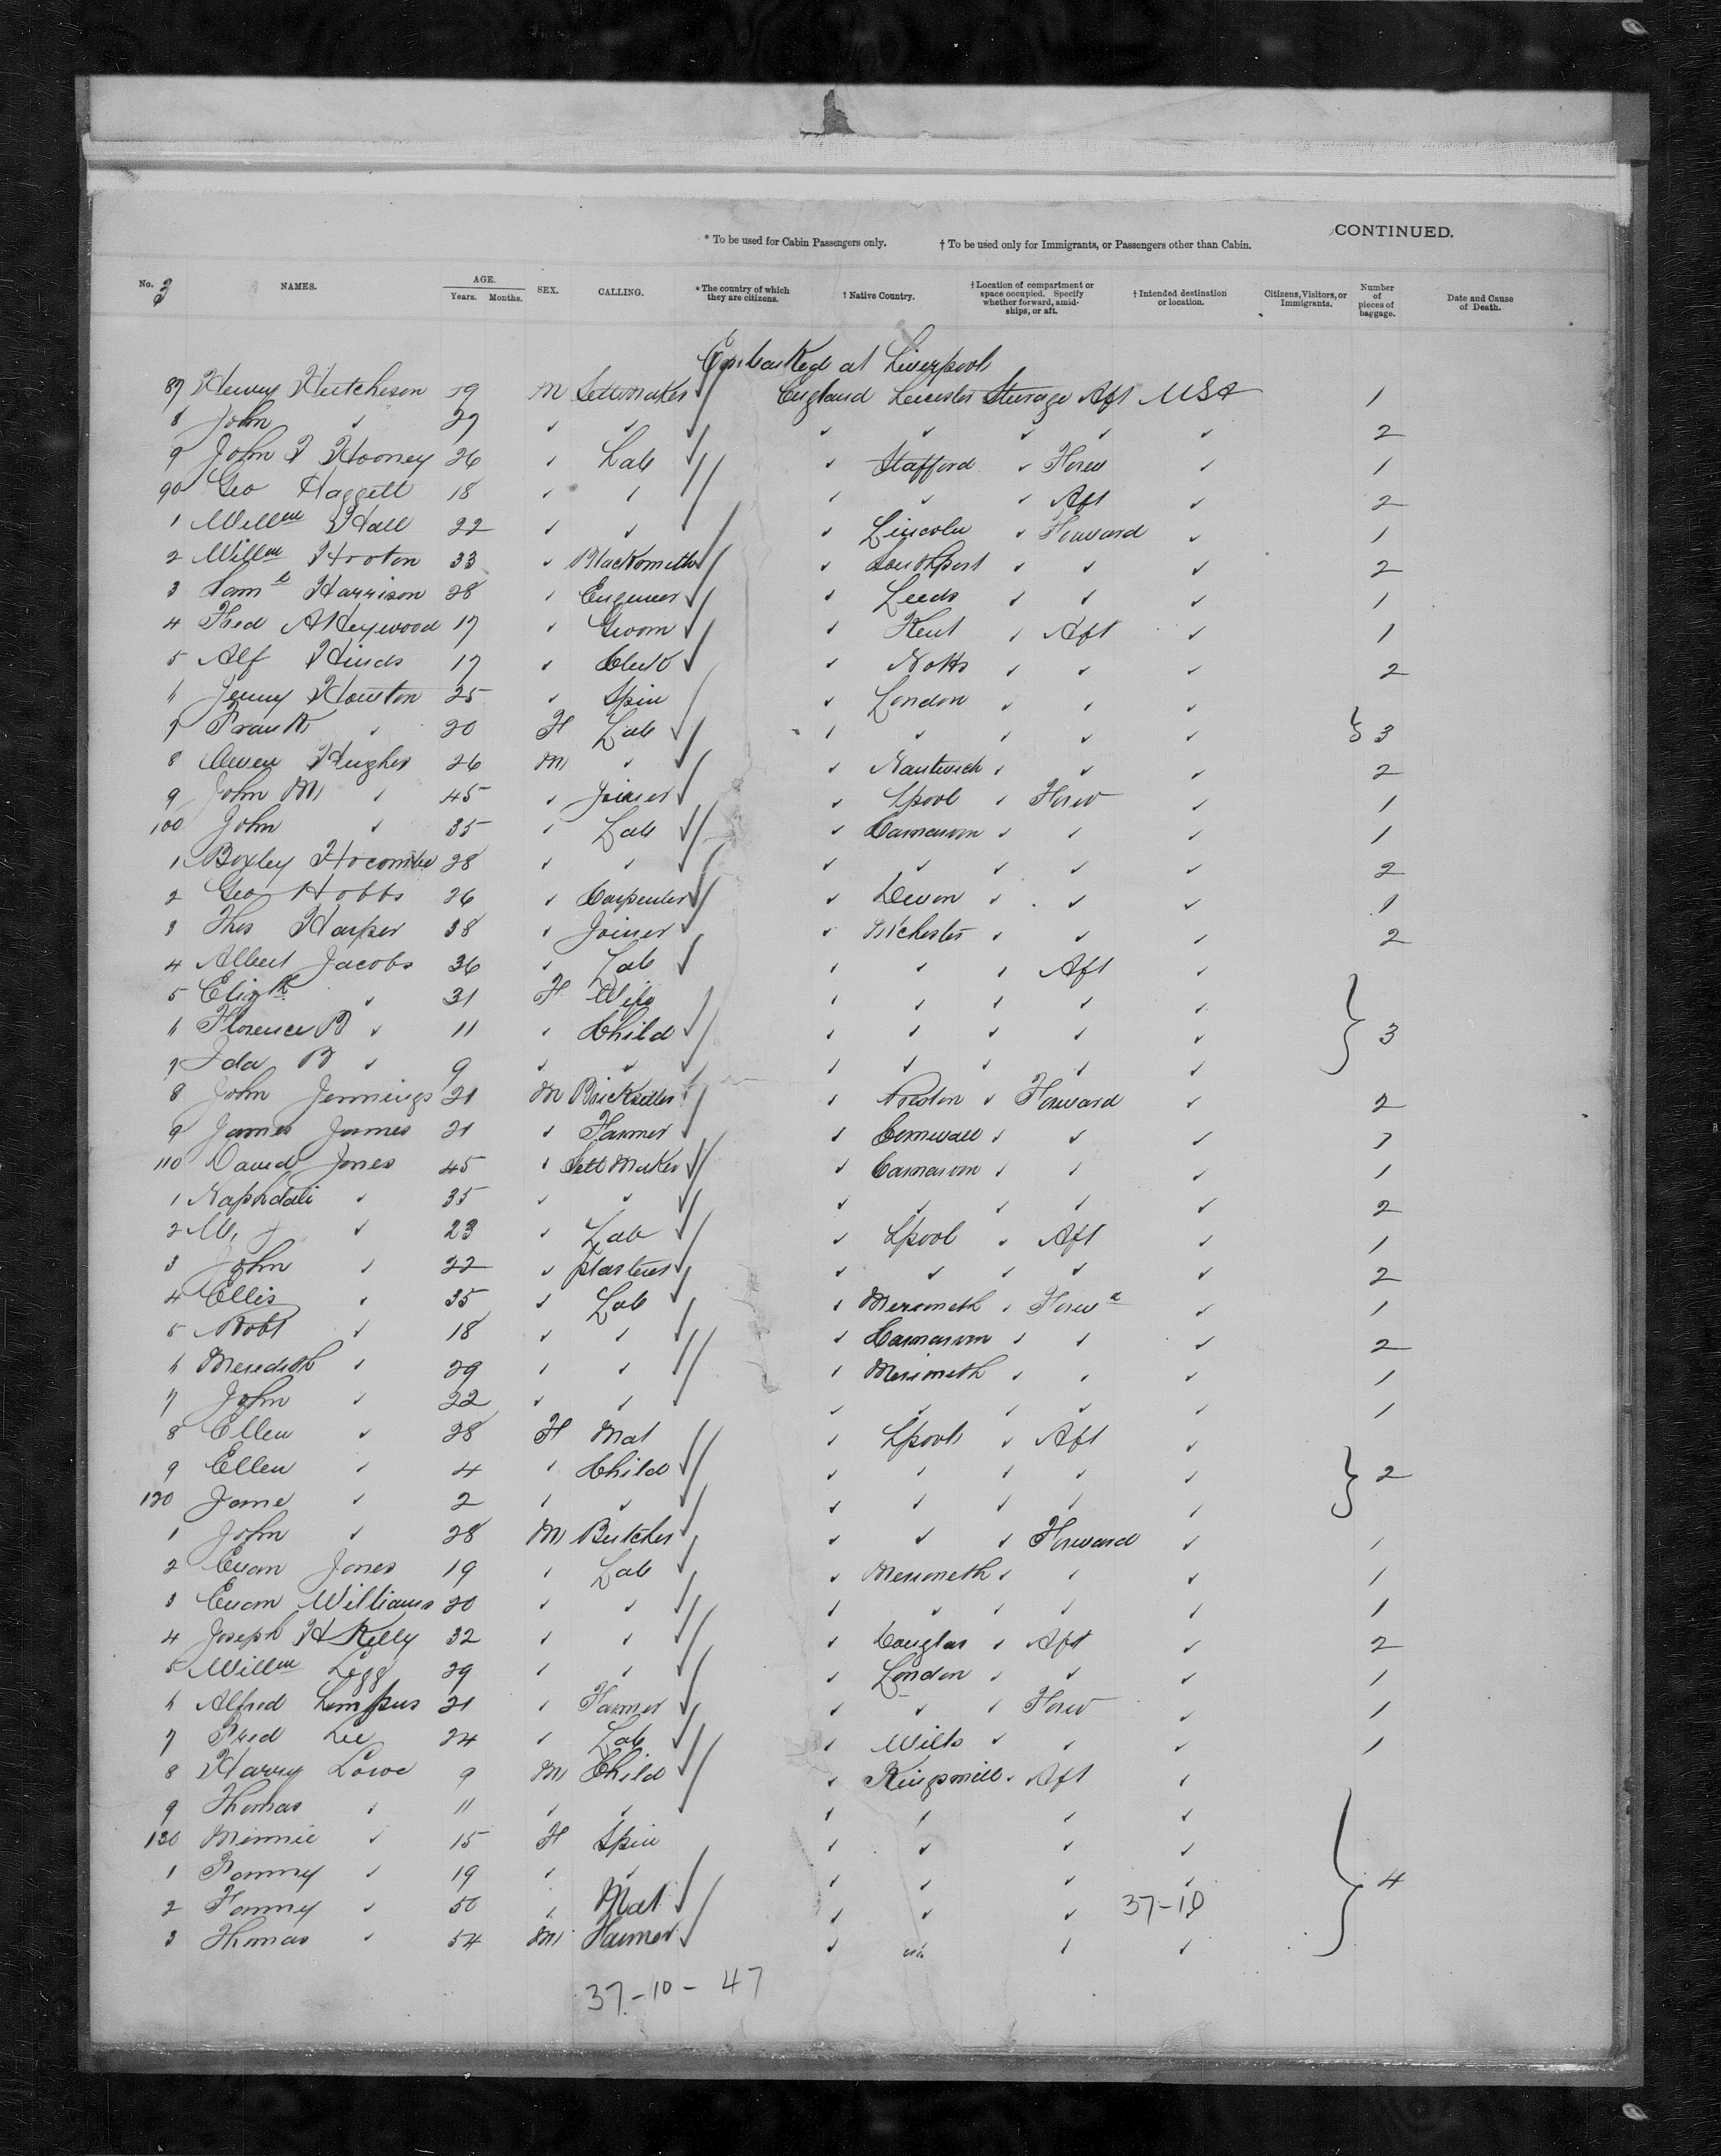 CONTINUED.
* To be used for Cabin Passengers only. † To be used only for Immigrants, or Passengers other than Cabin.
No. 3 NAMES. AGE. Years. Months. SEX. CALLING. *The country of which they are citizens. † Native Country. † Location of compartment or space occupied. Specify whether forward, amidships, or aft. † Intended destination or location. Citizens, Visitors, or Immigrants. Number of pieces of baggage. Date and Cause of Death.
Embarked at Liverpool
87 Henry Hutcheson 59 M Settmaker England Leicester Steerage Aft USA 1
8 John " 27 " " " " " " " 2
9 John Hooney 26 " Lab " Stafford " Forw " 1
90 Geo Haggett 18 " " " " " Aft " 2
1 Willm Hall 22 " " " Lincoln " Forward " 1
2 Willm Hooton 33 " Blacksmith " Southport " " " 2
3 Saml Harrison 28 " Engineer " Leeds " " " 1
4 Fred A Heywood 17 " Groom " Kent " Aft " 1
5 Alf Hinds 17 " Clerk " Notts " " " 2
6 Jenny Houston 25 " Spin " London " " "
7 Frank " 20 F Lab " " " " " } 3
8 Owen Hughes 26 M " " Nantwich " " " 2
9 John M " 45 " Joiner " Lpool " Forw " 1
100 John " 35 " Lab " Carnarvon " " " 1
1 Boxley Hocombe 28 " " " " " " " 2
2 Geo Hobbs 26 " Carpenter " Devon " " " 1
3 Thos Harper 38 " Joiner " " " " 2
4 Albert Jacobs 36 " Lab " " " Aft "
5 Elizth " 31 F Wife " " " " "
6 Florence B " 11 " Child " " " " " } 3
7 Ida B " 9 " " " " " " "
8 John Jennings 21 M " Preston " Forward " 2
9 James James 21 " Farmer " Cornwall " " " 1
110 David Jones 45 " Sett Maker " Carnarvon " " " 1
1 Naphdali " 35 " " " " " " " 2
2 " 23 " Lab " Lpool " Aft " 1
3 John " 22 " plasterer " " " " " 2
4 Ellis " 35 " Lab " Merioneth " Forwd " 1
5 Robt " 18 " " " Carnarvon " " " 2
6 Meredith " 29 " " " Merioneth " " " 1
7 John " 22 " " " " " " " 1
8 Ellen " 28 F Mat " Lpool " Aft "
9 Ellen " 4 " Child " " " " " } 2
120 Jane " 2 " " " " " " "
1 John " 28 M Butcher " " " Forward " 1
2 Evan Jones 19 " Lab " Merioneth " " " 1
3 Evan Williams 20 " " " " " " " 1
4 Joseph H Kelly 32 " " " Douglas " Aft " 2
5 Willm Legg 29 " " " London " " " 1
6 Alfred Limpus 21 " Farmer " " " Forw " 1
7 Fred Lee 24 " Lab " Wilts " " " 1
8 Harry Lowe 9 M Child " " Aft "
9 Thomas " 11 " " " " " "
130 Minnie " 15 F Spin " " " "
1 Fanny " 19 " " " " " " } 4
2 Fanny " 50 " Mat " " " 37-10
3 Thomas " 54 M Farmer " " " "
37-10-47